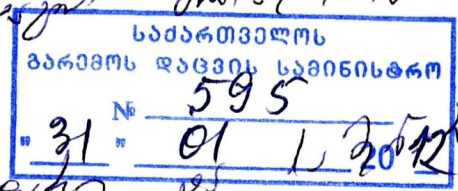 საქართველოს
გარემოს დაცვის სამინისტრო
№ 595
" 31 " 01 2012